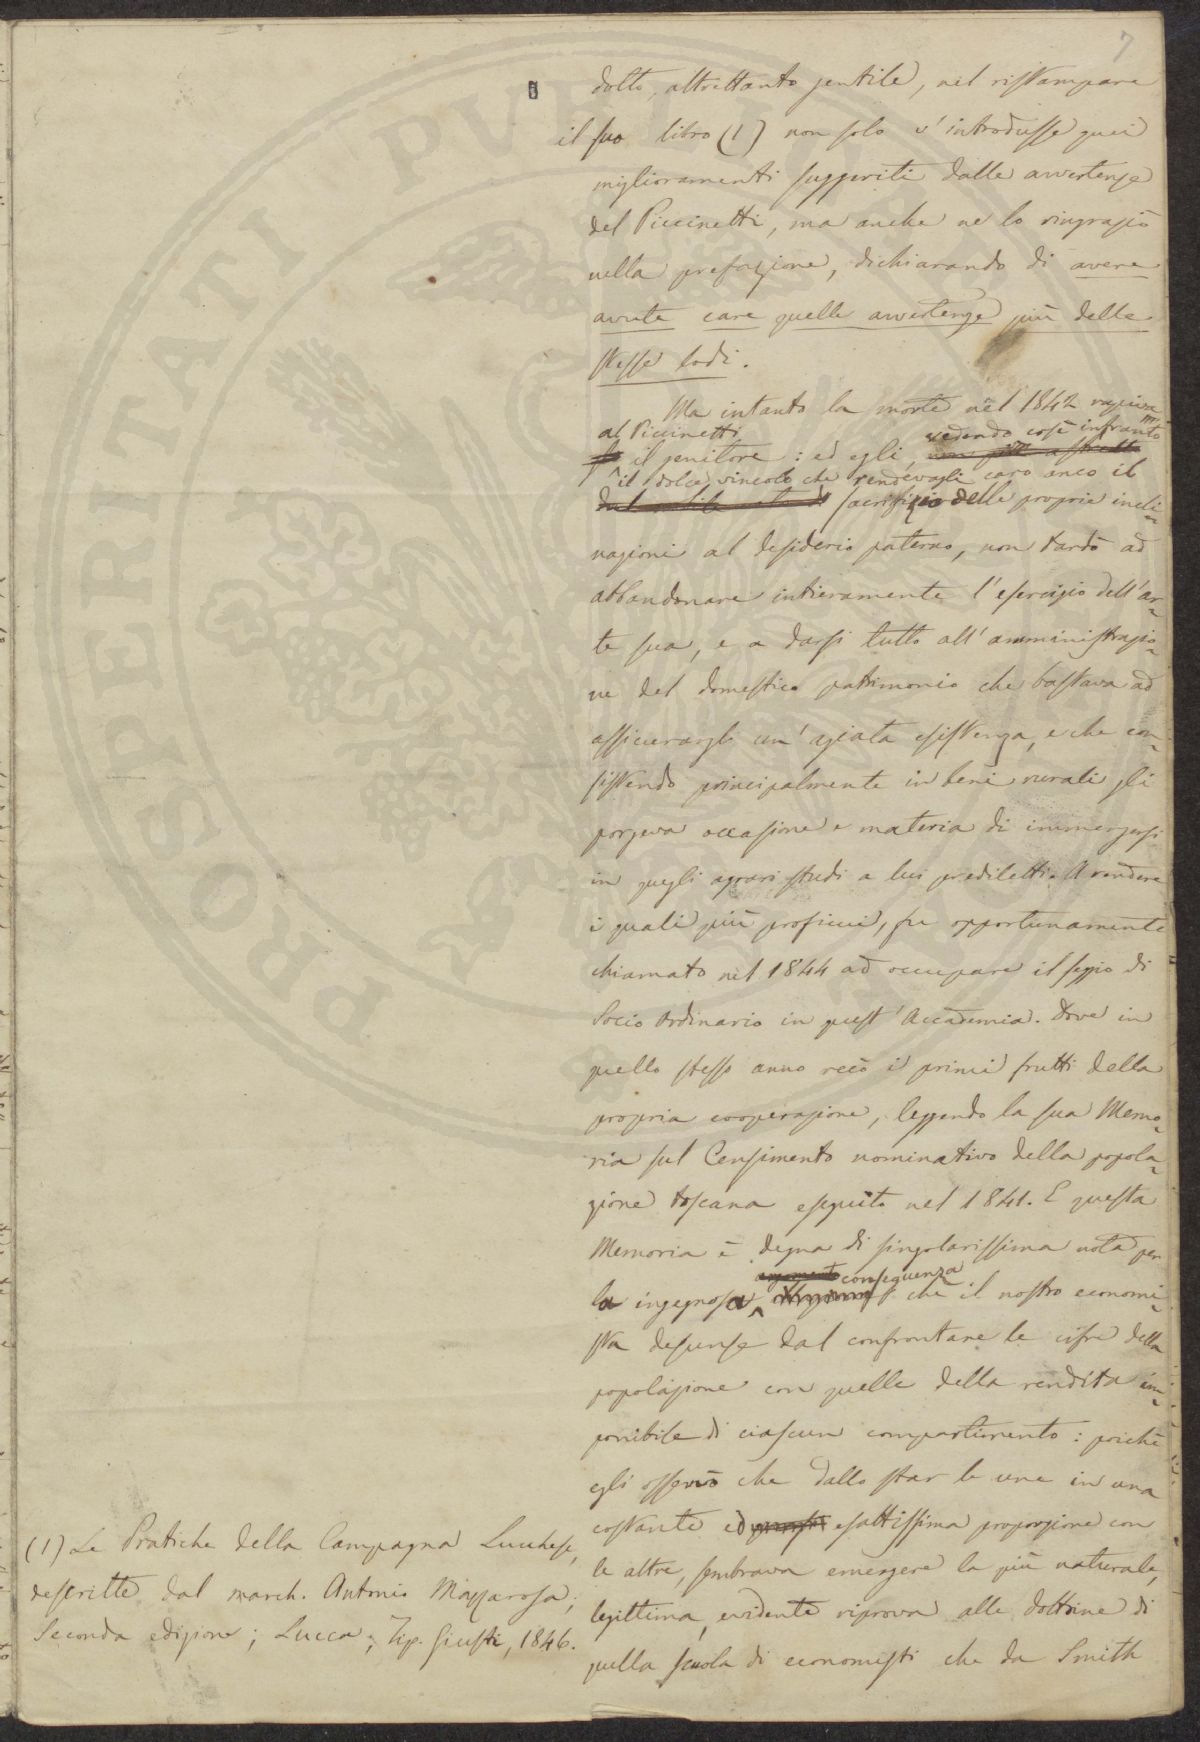 7
dotto, altrettanto gentile, nel ristampare
il suo libro (1) non solo v'introdusse quei
miglioramenti suggeriti dalle avvertenze
del Piccinetti, ma anche ne lo ringraziò
nella prefazione, dichiarando di avere
avute care quelle avvertenze più delle
stesse lodi.
Ma intanto la morte nel 1842 rapiva
al Piccinetti
il genitore: ed egli, vedendo così infranto
il dolce vincolo che rendevagli caro anco il
sacrifizio delle proprie incli-
nazioni al desiderio paterno, non tardò ad
abbandonare intieramente l'esercizio dell'ar-
te sua, e a darsi tutto all'amministrazio-
ne del domestico patrimonio che bastava ad
assicurargli un'agiata esistenza, e che con-
sistendo principalmente in beni rurali gli
porgeva occasione e materia di immergersi
in quegli agrari studi a lui prediletti. A rendere
i quali più proficui, fu opportunamente
chiamato nel 1844 ad occupare il seggio di
Socio Ordinario in quest'Accademia. Dove in
quello stesso anno recò i primi frutti della
propria cooperazione, leggendo la sua Memo-
ria sul Censimento nominativo della popola-
zione toscana eseguito nel 1841. E questa
Memoria è degna di singolarissima nota per
argomento conseguenza
la ingegnosa che il nostro economi-
sta desunse dal confrontare le cifre della
popolazione con quelle della rendita im-
ponibile di ciascun compartimento: poichè
egli osservò che dallo star le une in una
costante ed quasi esattissima proporzione con
le altre, sembrava emergere la più naturale,
legittima, evidente riprova alle dottrine di
quella scuola di economisti che da Smith
(1) Le Pratiche della Campagna Lucchese,
descritte dal march. Antonio Mazzarosa;
Seconda edizione; Lucca, Tip. Giusti, 1846.
PROSPERITATI PVBLICAE